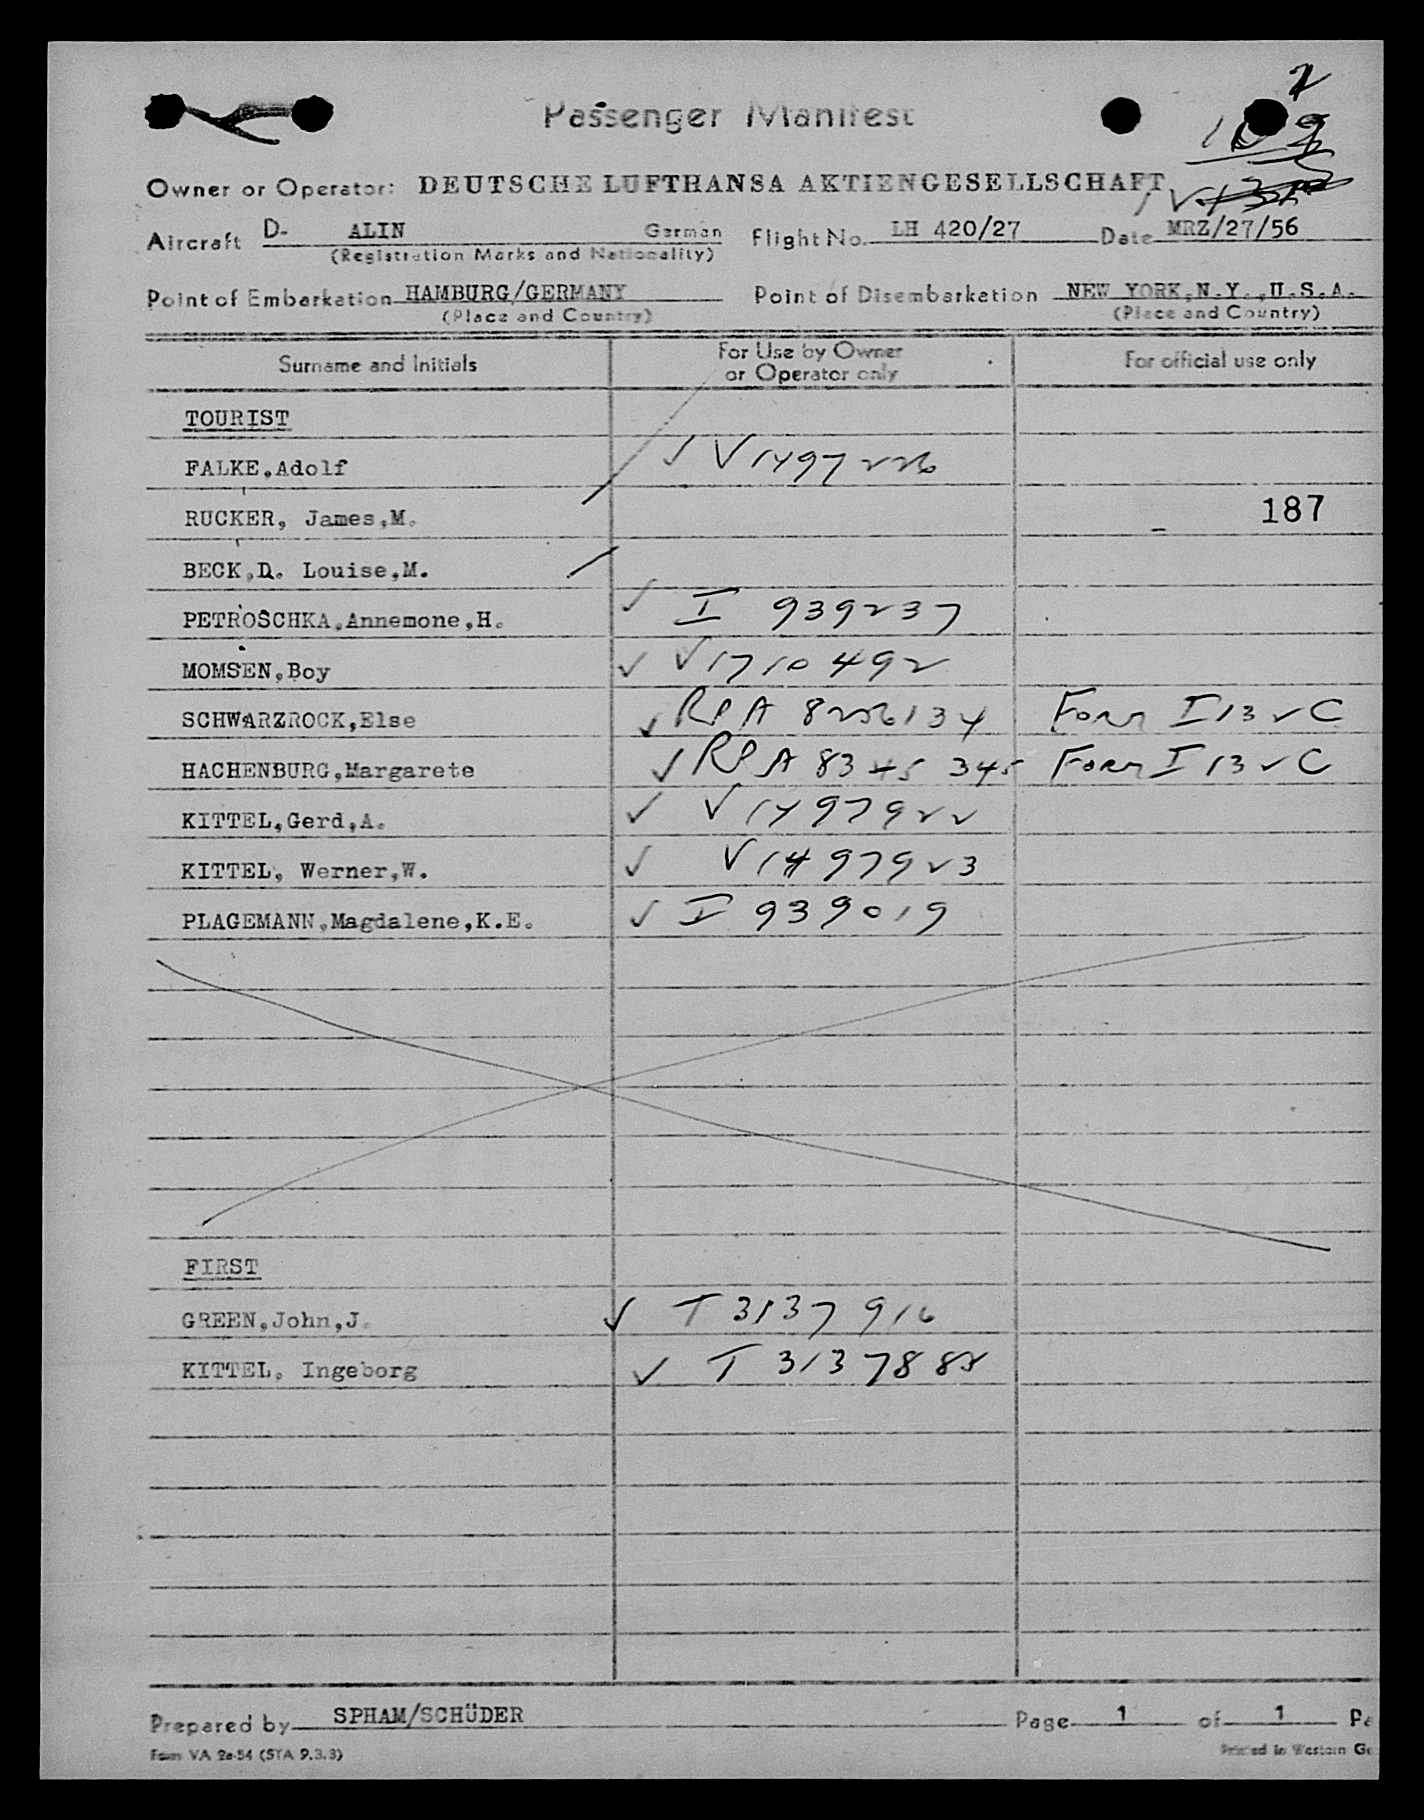 2
Passenger Manifest
Owner or Operator: DEUTSCHE LUFTHANSA AKTIENGESELLSCHAFT
Aircraft D- ALIN German Flight No. LH 420/27 Date MRZ/27/56
(Registration Marks and Nationality)
Point of Embarkation HAMBURG/GERMANY Point of Disembarkation NEW YORK,N.Y.,U.S.A.
(Place and Country) (Place and Country)
Surname and Initials For Use by Owner or Operator only For official use only
TOURIST
FALKE,Adolf ✓ V1497226
RUCKER, James,M. 187
BECK,D. Louise,M.
PETROSCHKA,Annemone,H. ✓ I 939237
MOMSEN,Boy ✓ V1710492
SCHWARZROCK,Else ✓ RPA 8256134 Form I132C
HACHENBURG,Margarete ✓ RPA 8345 345 Form I132C
KITTEL,Gerd,A. ✓ V1497922
KITTEL, Werner,W. ✓ V1497923
PLAGEMANN,Magdalene,K.E. ✓ I 939019
FIRST
GREEN,John,J. ✓ T 3137916
KITTEL. Ingeborg ✓ T 3137888
Prepared by SPHAM/SCHÜDER Page 1 of 1 Pa
Form VA 2e-54 (STA 9.3.3) Printed in Western Ge